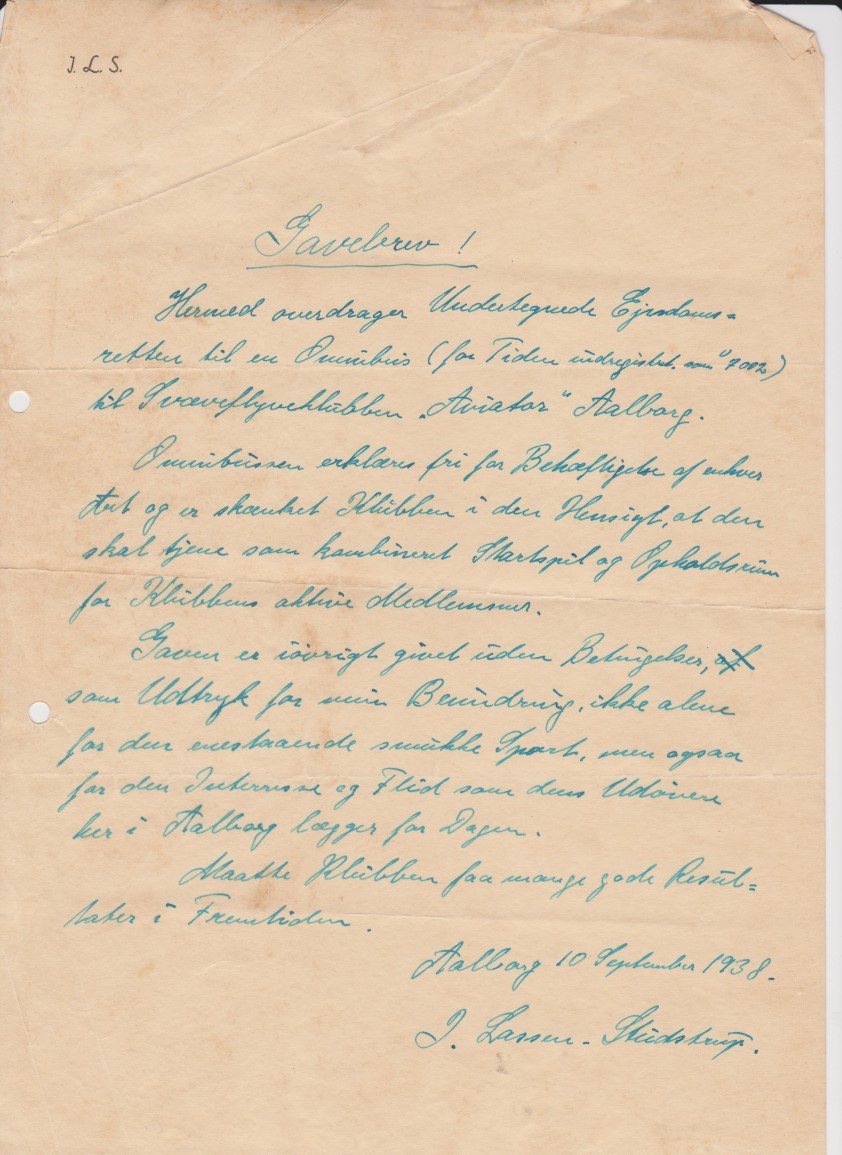 J. L. S.
Gavebrev !
Hermed overdrager Undertegnede Ejendoms=
retten til en Omnibus (for Tiden indregistrt. som 7002)
til Svæveflyveklubben „Aviator“ Aalborg.
Omnibussen erklæres fri for Behæftigelse af enhver
Art og er skænket Klubben i den Hensigt, at den
skal tjene som kombineret Startspil og Opholdsrum
for Klubbens aktive Medlemmer.
Gaven er iøvrigt givet uden Betingelser,
som Udtryk for min Beundring, ikke alene
for den enestaaende smukke Sport, men ogsaa
for den Interesse og Flid som dens Udøvere
her i Aalborg lægger for Dagen.
Maatte Klubben faa mange gode Resul=
tater i Fremtiden.
Aalborg 10 September 1938.
J. Lassen - Studstrup.